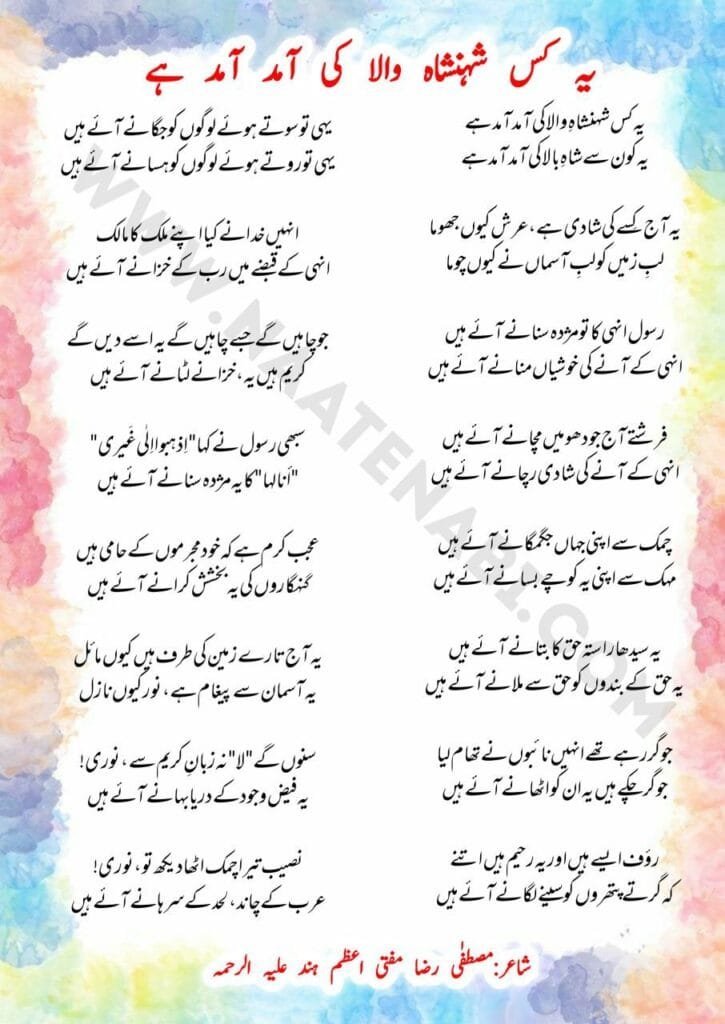 یہ کس شہنشاہ والا کی آمد آمد ہے
یہ کس شہنشاہِ والا کی آمد آمد ہے
یہ کون سے شاہِ بالا کی آمد آمد ہے
یہ آج کسے کی شادی ہے، عرش کیوں جھوما
لبِ زمیں کو لبِ آسماں نے کیوں چوما
رسول انہی کا تو مژدہ سنانے آئے ہیں
انہی کے آنے کی خوشیاں منانے آئے ہیں
فرشتے آج جو دھومیں مچانے آئے ہیں
انہی کے آنے کی شادی رچانے آئے ہیں
چمک سے اپنی جہاں جگمگانے آئے ہیں
مہک سے اپنی یہ کوچے بسانے آئے ہیں
یہ سیدھا راستہ حق کا بتانے آئے ہیں
یہ حق کے بندوں کو حق سے ملانے آئے ہیں
جو گر رہے تھے انہیں نائبوں نے تھام لیا
جو گر چکے ہیں یہ ان کو اٹھانے آئے ہیں
رؤف ایسے ہیں اور یہ رحیم ہیں اتنے
کہ گرتے پتھروں کو سینے لگانے آئے ہیں
یہی تو سوتے ہوئے لوگوں کو جگانے آئے ہیں
یہی تو روتے ہوئے لوگوں کو ہسانے آئے ہیں
انہیں خدا نے کیا اپنے ملک کا مالک
انہی کے قبضے میں رب کے خزانے آئے ہیں
جو چاہیں گے جسے چاہیں گے یہ اسے دیں گے
کریم ہیں یہ، خزانے لٹانے آئے ہیں
سبھی رسول نے کہا "اِذہبوا اِلٰی غَیری"
"اَنا لہا" کا یہ مژدہ سنانے آئے ہیں
عجب کرم ہے کہ خود مجرموں کے حامی ہیں
گنہگاروں کی یہ بخشش کرانے آئے ہیں
یہ آج تارے زمین کی طرف ہیں کیوں مائل
یہ آسمان سے پیغام ہے، نور کیوں نازل
سنوں گے "لا" نہ زبانِ کریم سے، نوری!
یہ فیض و جود کے دریا بہانے آئے ہیں
نصیب تیرا چمک اٹھا دیکھ تو، نوری!
عرب کے چاند، لحد کے سرہانے آئے ہیں
شاعر: مصطفٰی رضا مفتی اعظم ہند علیہ الرحمہ
WWW.NAATENABI.COM